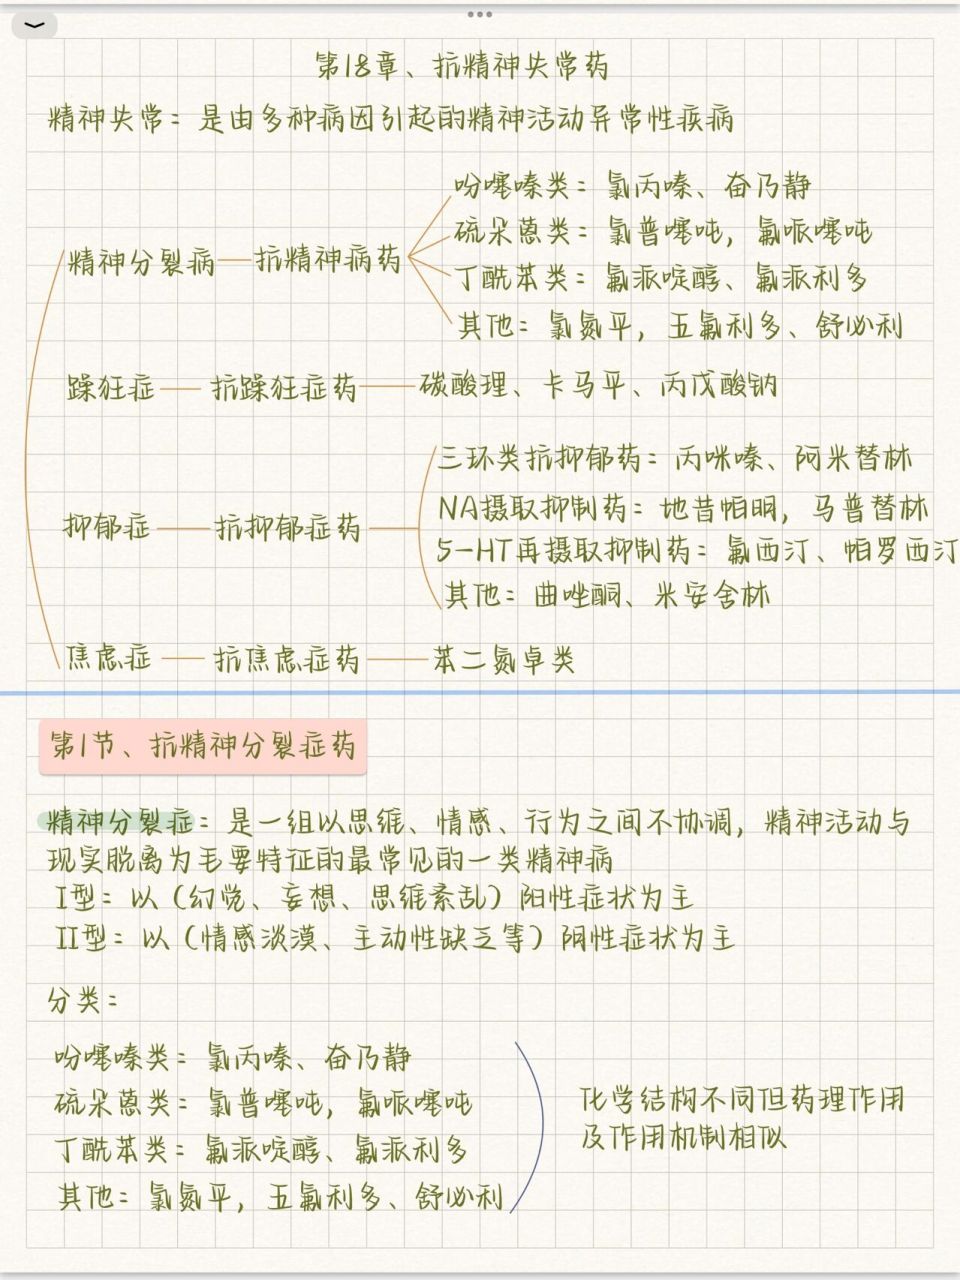 第18章、抗精神失常药
精神失常：是由多种病因引起的精神活动异常性疾病
精神分裂病—抗精神病药
吩噻嗪类：氯丙嗪、奋乃静
硫朵蒽类：氯普噻吨，氟哌噻吨
丁酰苯类：氟派啶醇、氟派利多
其他：氯氮平，五氟利多、舒必利
躁狂症—抗躁狂症药—碳酸理、卡马平、丙戊酸钠
抑郁症—抗抑郁症药
三环类抗抑郁药：丙咪嗪、阿米替林
NA摄取抑制药：地昔帕明，马普替林
5-HT再摄取抑制药：氟西汀、帕罗西汀
其他：曲唑酮、米安舍林
焦虑症—抗焦虑症药—苯二氮卓类
第1节、抗精神分裂症药
精神分裂症：是一组以思维、情感、行为之间不协调，精神活动与
现实脱离为毛要特征的最常见的一类精神病
I型：以（幻觉、妄想、思维紊乱）阳性症状为主
II型：以（情感淡漠、主动性缺乏等）阴性症状为主
分类：
吩噻嗪类：氯丙嗪、奋乃静
硫朵蒽类：氯普噻吨，氟哌噻吨
丁酰苯类：氟派啶醇、氟派利多
其他：氯氮平，五氟利多、舒必利
化学结构不同但药理作用
及作用机制相似